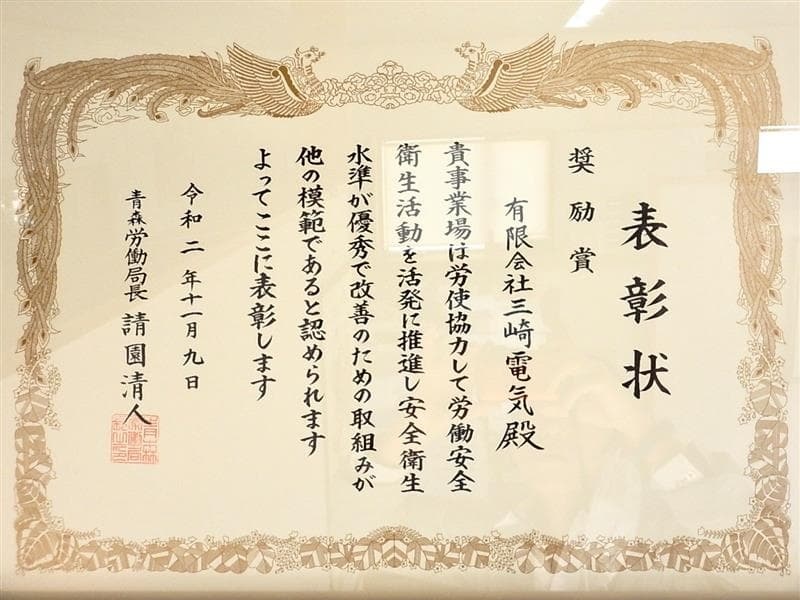 表彰状
奨励賞
有限会社三崎電気殿
貴事業場は労使協力して労働安全
衛生活動を活発に推進し安全衛生
水準が優秀で改善のための取組みが
他の模範であると認められます
よってここに表彰します
令和二年十一月九日
青森労働局長 請園清人